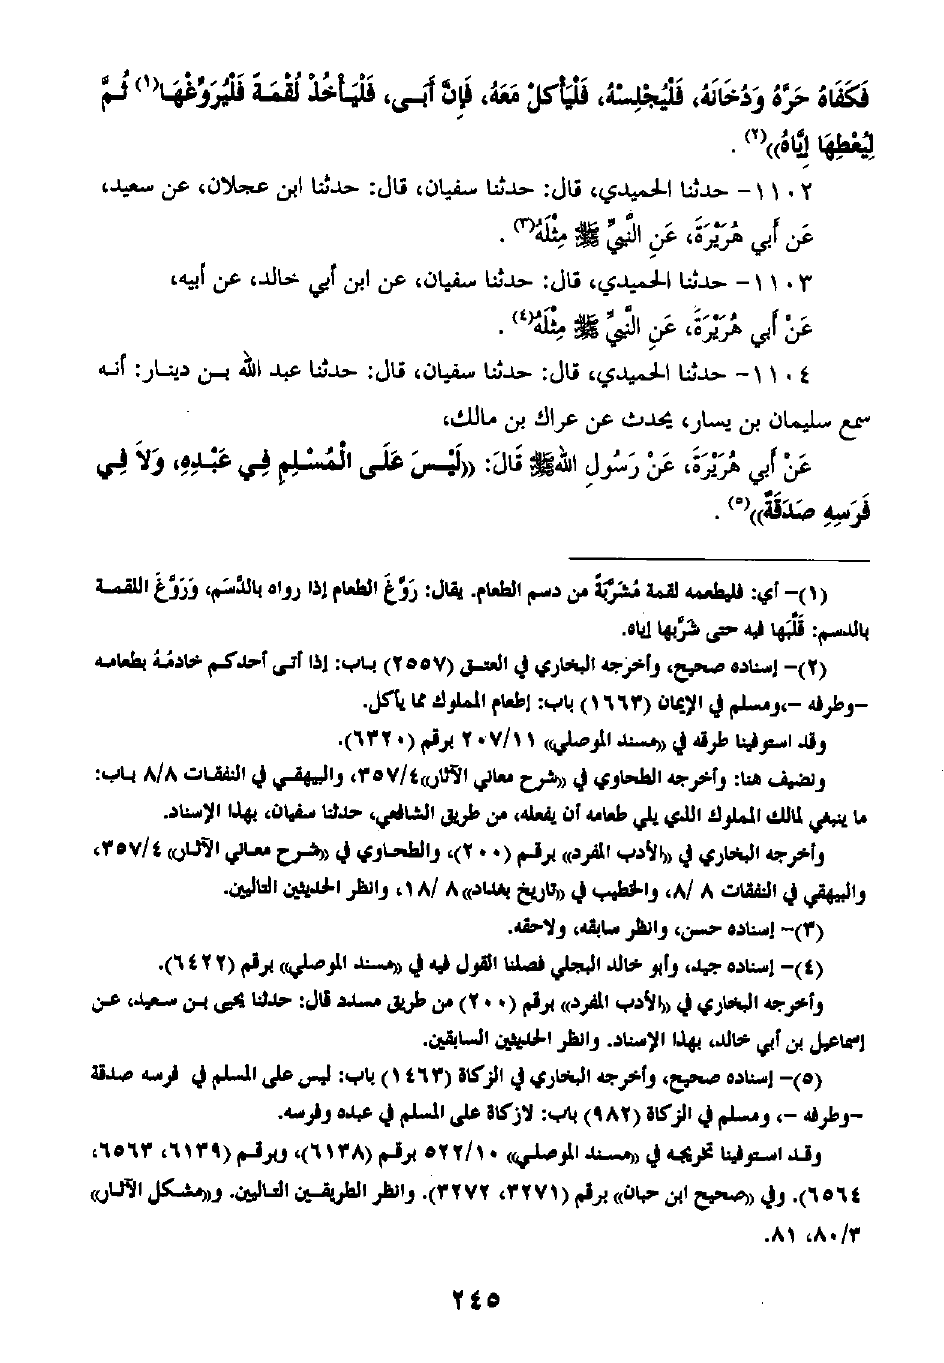 فَكَفَاهُ حَرَّهُ وَدُخَانَهُ، فَلْيُجْلِسْهُ، فَلْيَأْكلْ مَعَهُ، فَإِنَّ أَبَى، فَلْيَأْخُذْ لُقْمَةً فَلْيُرَوِّغْهَا(١) ثُمَّ
لِيُعْطِهَا إِيَّاهُ))(٢) .
١١٠٢- حدثنا الحميدي، قال: حدثنا سفيان، قال: حدثنا ابن عجلان، عن سعيد،
عَن أَبي هُرَيْرَةَ، عَنِ النَّبِيِّ ﷺ مِثْلَهُ(٣) .
١١٠٣- حدثنا الحميدي، قال: حدثنا سفيان، عن ابن أبي خالد، عن أبيه،
عَنْ أَبي هُرَيْرَةَ، عَنِ النَّبِيِّ ﷺ مِثْلَهُ(٤) .
١١٠٤- حدثنا الحميدي، قال: حدثنا سفيان، قال: حدثنا عبد الله بن دينار: أنه
سمع سليمان بن يسار، يحدث عن عراك بن مالك،
عَنْ أَبي هُرَيْرَةَ، عَنْ رَسُولِ اللهﷺ قَالَ: ((لَيْسَ عَلَى الْمُسْلِمِ فِي عَبْدِهِ، وَلاَ فِي
فَرَسِهِ صَدَقَةٌ))(٥) .
(١)- أي: فليطعمه لقمة مُشَرَّبَةً من دسم الطعام. يقال: رَوَّغَ الطعام إذا رواه بالدَّسَم، وَرَوَّغَ اللقمة
بالدسم: قَلَّبَها فيه حتى شَرَّبها إياه.
(٢)- إسناده صحيح، وأخرجه البخاري في العتق (٢٥٥٧) باب: إذا أتى أحدكم خادمُهُ بطعامه
-وطرفه -،ومسلم في الإيمان (١٦٦٣) باب: إطعام المملوك مما يأكل.
وقد استوفينا طرقه في ((مسند الموصلي)) ٢٠٧/١١ برقم (٦٣٢٠).
ونضيف هنا: وأخرجه الطحاوي في ((شرح معاني الآثار))٣٥٧/٤، والبيهقي في النفقات ٨/٨ باب:
ما ينبغي لمالك المملوك الذي يلي طعامه أن يفعله، من طريق الشافعي، حدثنا سفيان، بهذا الإسناد.
وأخرجه البخاري في ((الأدب المفرد)) برقم (٢٠٠)، والطحاوي في ((شرح معاني الآثار)) ٣٥٧/٤،
والبيهقي في النفقات ٨ /٨، والخطيب في ((تاريخ بغداد))٨ /١٨، وانظر الحديثين التاليين.
(٣)- إسناده حسن، وانظر سابقه، ولاحقه.
(٤)- إسناده جيد، وأبو خالد البجلي فصلنا القول فيه في ((مسند الموصلي)) برقم (٦٤٢٢).
وأخرجه البخاري في ((الأدب المفرد)) برقم (٢٠٠) من طريق مسدد قال: حدثنا يحيى بن سعيد، عن
إسماعيل بن أبي خالد، بهذا الإسناد. وانظر الحديثين السابقين.
(٥)- إسناده صحيح، وأخرجه البخاري في الزكاة (١٤٦٣) باب: ليس على المسلم في فرسه صدقة
-وطرفه -، ومسلم في الزكاة (٩٨٢) باب: لازكاة على المسلم في عبده وفرسه.
وقد استوفينا تخريجه في ((مسند الموصلي)) ٥٢٢/١٠ برقم (٦١٣٨)، وبرقم (٦١٣٩، ٦٥٦٣،
٦٥٦٤). وفي ((صحيح ابن حبان)) برقم (٣٢٧١، ٣٢٧٢). وانظر الطريقين التاليين. و((مشكل الآثار))
٨٠/٣، ٨١.
٢٤٥